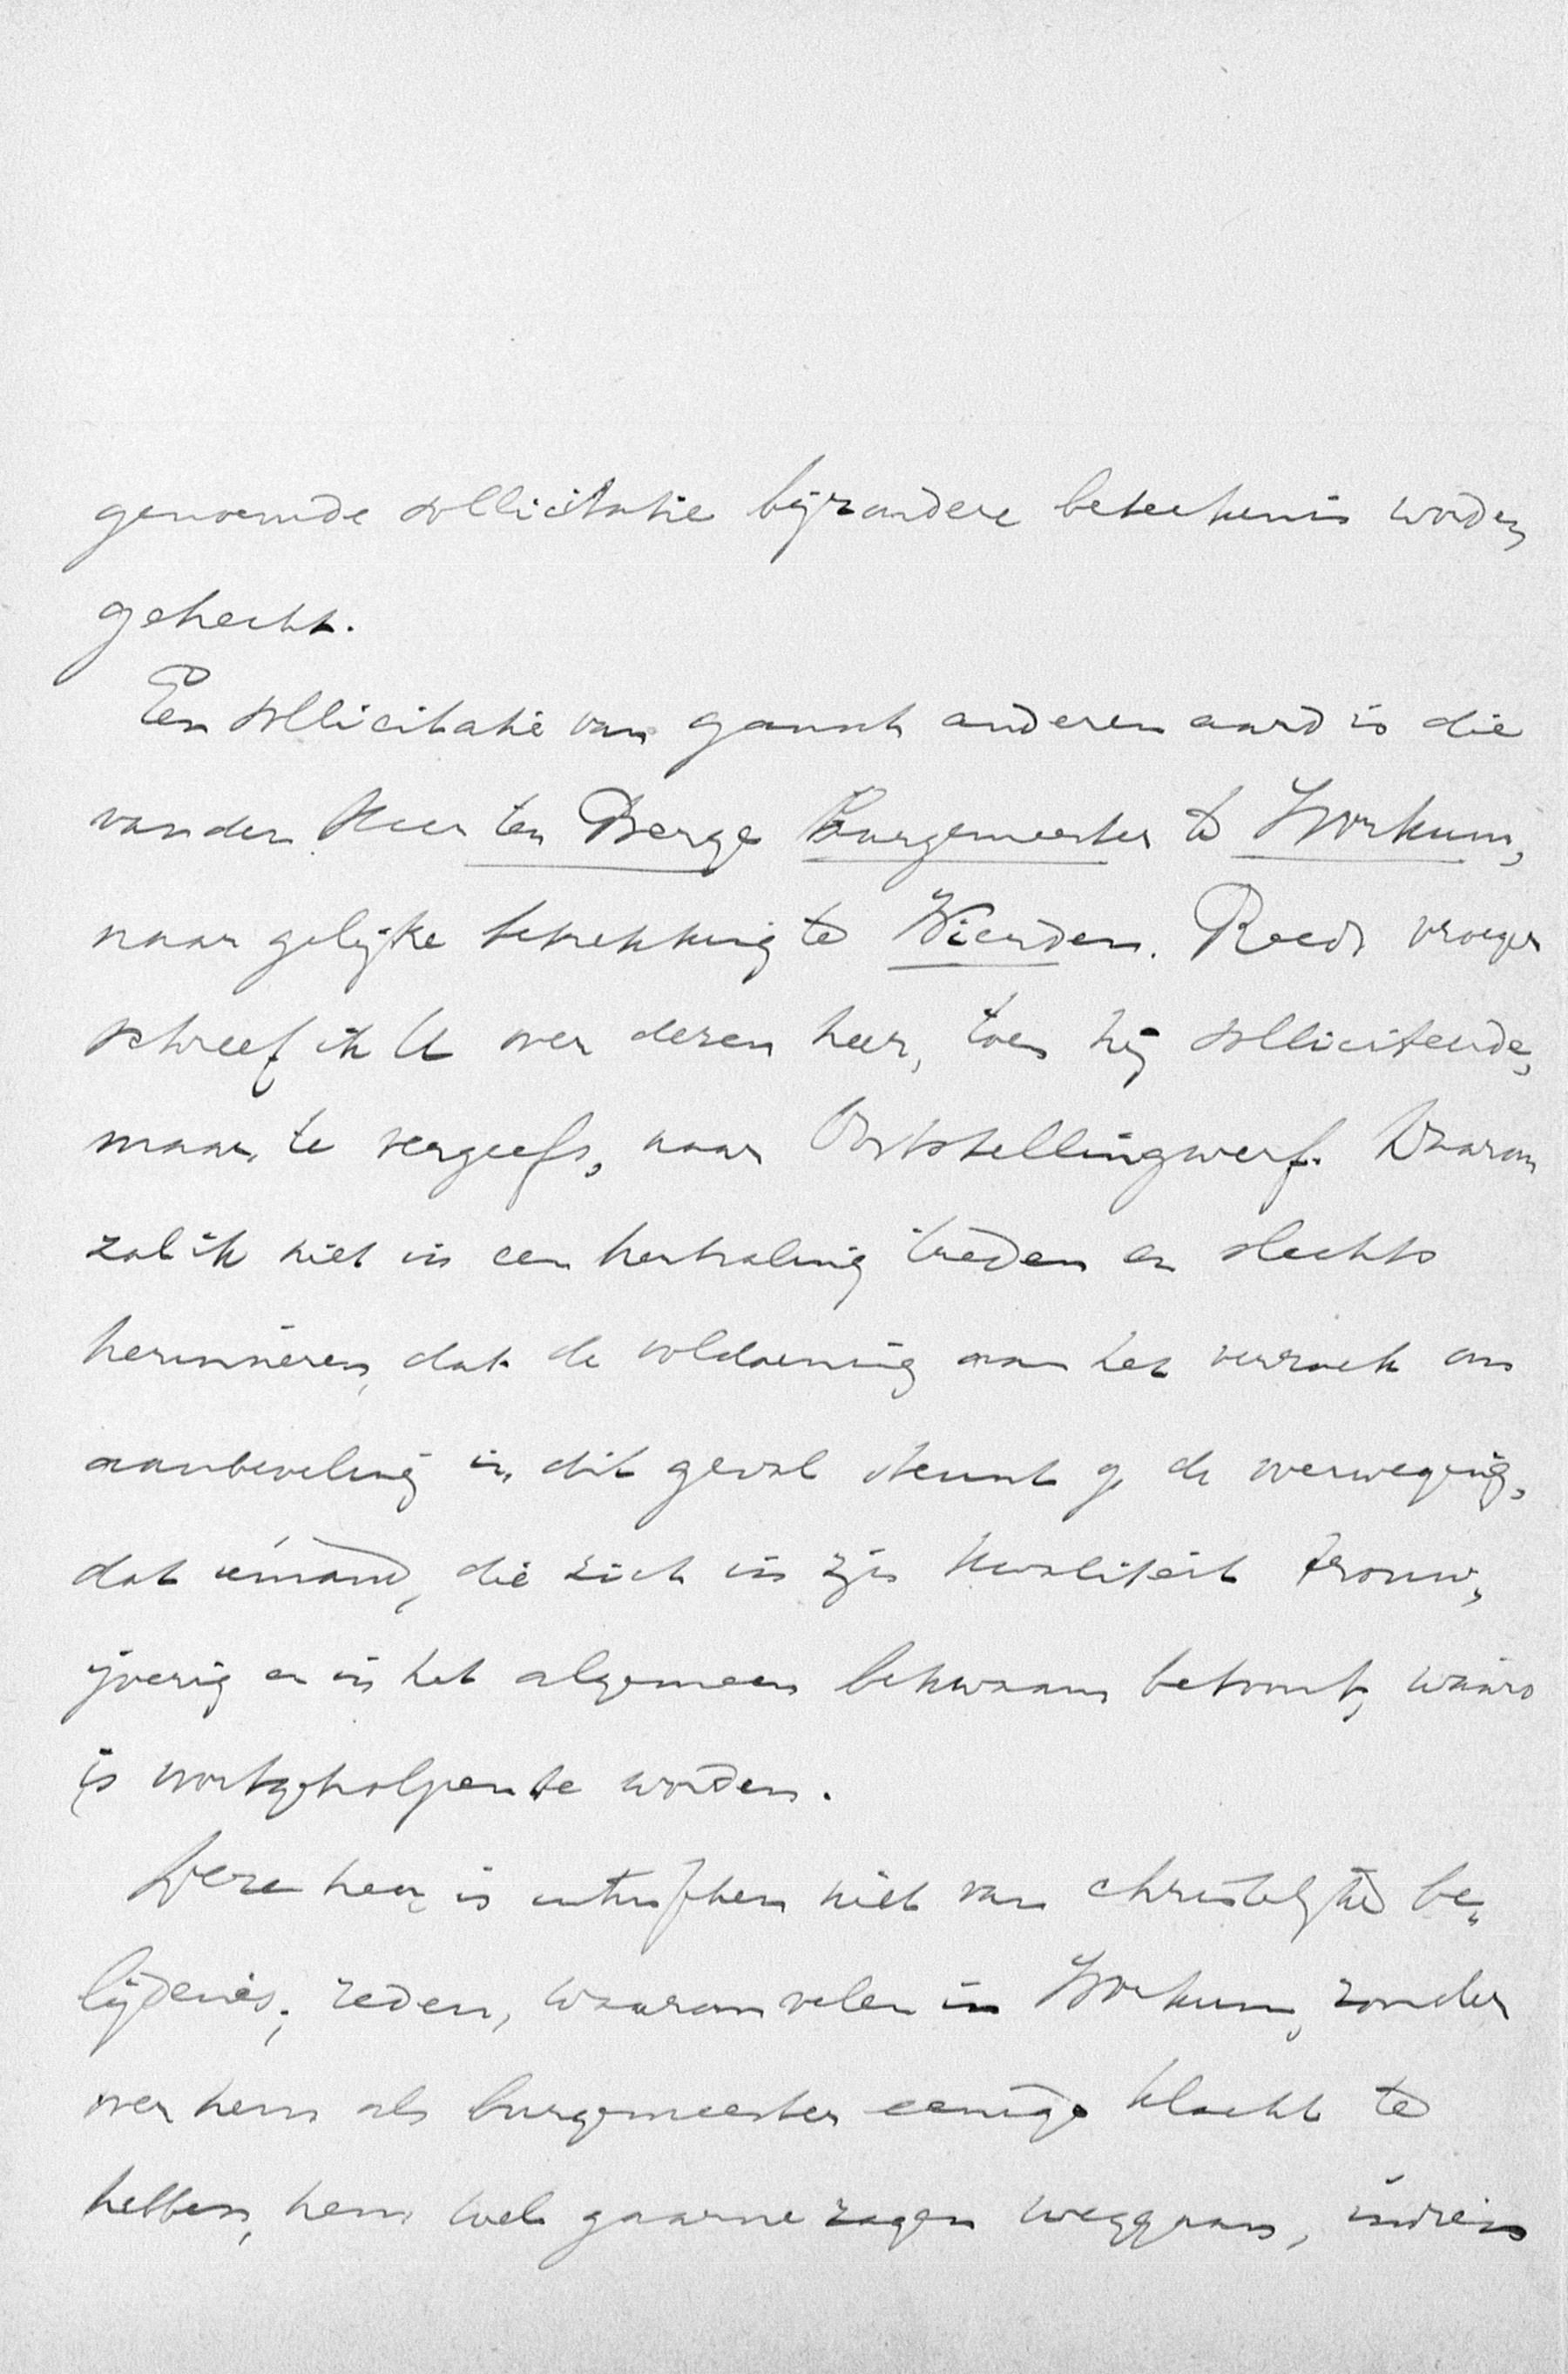 genoemde sollicitatie bijzondere beteekenis worden
gehecht.
Een sollicitatie van gansch anderen aard is die
van den Heer ten Berge Burgemeester te Workum,
naar gelijke betrekking te Wierden. Reeds vroeger
schreef ik U over dezen heer, toen hij solliciteerde,
maar te vergeefs, naar Ooststellingwerf. Daarom
zal ik niet in een herhaling treden en slechts
herinneren, dat de voldoening aan het verzoek om
aanbeveling in dit geval steunt op de overweging,
dat iemand, die zich in zijn kwaliteit trouw,
ijverig en in het algemeen bekwaam betoont, waard
is voortgeholpen te worden.
Deze heer is intusschen niet van christelijke be-
lijdenis; reden, waarom velen in Workum, zonder
over hem als burgemeester eenige klacht te
hebben, hem wel gaarne zagen weggaan, indien